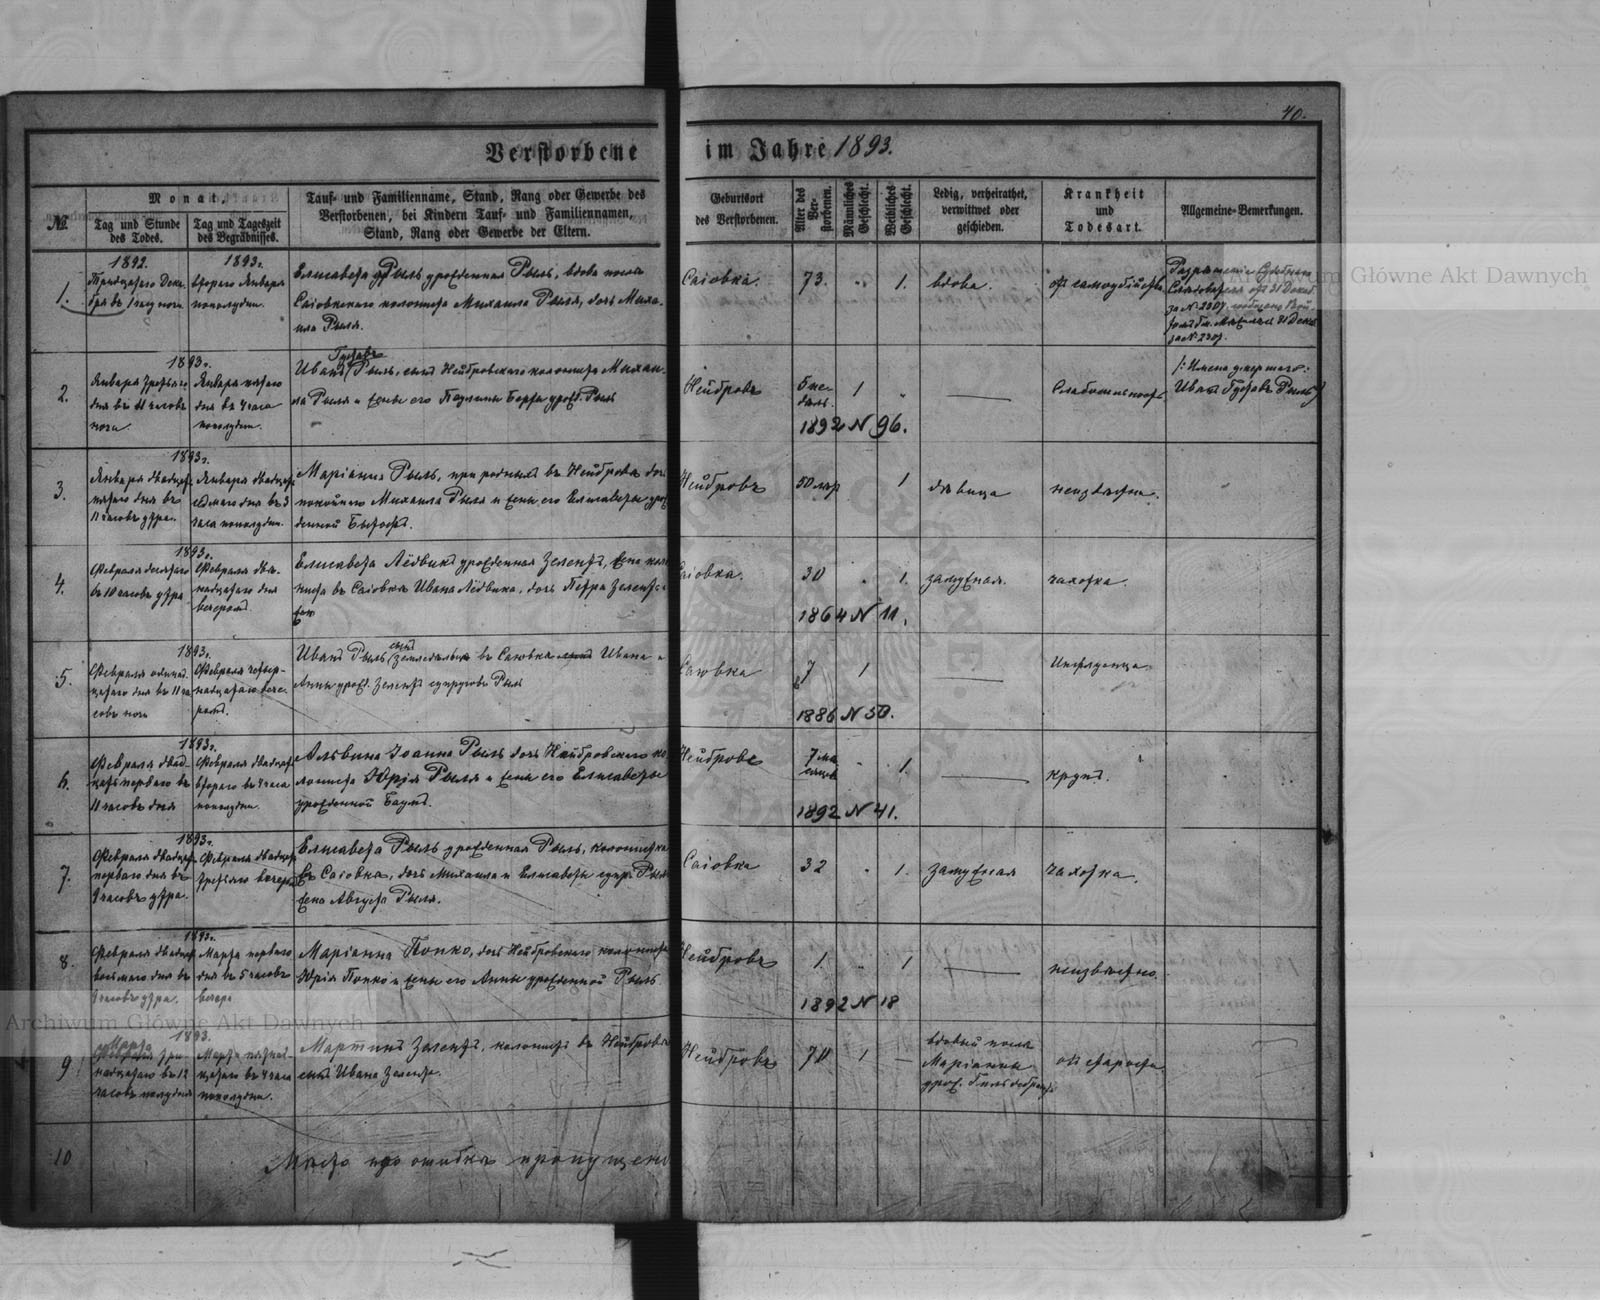 40.
Verstorbene im Jahre 1893.
№
Monat,
Tag und Stunde des Todes.
Tag und Tageszeit des Begräbnisses.
Tauf- und Familienname, Stand, Rang oder Gewerbe des
Verstorbenen, bei Kindern Tauf- und Familiennamen,
Stand, Rang oder Gewerbe der Eltern.
Geburtsort
des Verstorbenen.
Alter des Ver-
storbenen.
Männliches
Geschlecht.
Weibliches
Geschlecht.
Ledig, verheirathet,
verwittwet oder
geschieden.
Krankheit
und
Todesart.
Allgemeine-Bemerkungen.
1.
1892.
Тридцатаго Дека-
бря въ 1 часу ночи
1893 г.
втораго Января
пополудни.
Елисавета Рыль урожденная Рыль, вдова посла
Саіовкскаго колониста Михаила Рыля, дочь Миха-
ила Рыля.
Саіовка.
73.
1.
вдова.
от самоубійства
31
2.
1893 г.
Января третьяго
дня въ 11 часовъ
ночи.
Января пятаго
дня въ 4 часа
пополудни.
Густавъ
Иванъ Рыль, сынъ Нейбровскаго колониста Михаи-
ла Рыля и жены его Паулины Берты урож. Рыль
Нейбровъ
5 не-
дѣль.
1
1892 N 96.
Слабосильность
/: Имена умершаго:
Иванъ Густавъ Рыль
3.
1893 г.
Января двадцать
пятаго дня въ
11 часовъ утра.
Января двадцать
седьмаго дня въ 3
часа пополудни.
Маріанна Рыль, при родныхъ въ Нейбровѣ, дочь
покойнаго Михаила Рыля и жены его Елисаветы урож-
денной
Нейбровъ
50 лѣтъ
1
дѣвица
неизвѣстна.
4.
1893 г.
Февраля десятаго
въ 10 часовъ утра
Февраля двѣ-
надцатаго дня
вечеромъ.
Елисавета Лёдвикъ урожденная Зелентъ, жена коло-
ниста въ Саіовкѣ Ивана Лёдвика, дочь Петра Зелента
Саіовка.
30
1.
1864 N 11.
замужная.
чахотка.
5.
1893 г.
Февраля одинад-
цатаго дня въ 11 ча-
совъ ночи
Февраля четыр-
надцатаго вече-
ромъ.
сынъ
Иванъ Рыль земледѣльца въ Саіовкѣ Ивана и
Анны урож. Зелентъ супруговъ Рыль
Саіовка
7
1
1886 N 50.
Инфлуенца.
6.
1893 г.
Февраля двад-
цать перваго въ
11 часовъ дня
Февраля двадцать
втораго въ 4 часа
пополудни.
Альвина Іоанна Рыль дочь Нейбровскаго ко-
лониста Юрія Рыля и жены его Елисаветы
урожденной Баумъ.
Нейбровъ
7 мѣ-
сяцевъ
1.
1892 N 41.
крупъ.
7.
1893 г.
Февраля двадцать
перваго дня въ
9 часовъ утра.
Февраля двадцать
третьяго вечеромъ
Елисавета Рыль урожденная Рыль, колонистка
въ Саіовкѣ, дочь Михаила и Елисаветы супр. Рыль
жена Августа Рыля.
Саіовка
32
1.
замужная
чахотка.
8.
1893 г.
Февраля двадцать
восьмаго дня въ
9 часовъ утра.
Марта перваго
дня въ 5 часовъ
вечера
Маріанна Попко, дочь Нейбровскаго колониста
Юрія Попко и жены его Анны урожденной Рыль.
Нейбровъ
1.
1
1892 N 18
неизвѣстно.
9
1893.
Марта
три-
надцатаго въ 12
часовъ полудня
Марта пятнад-
цатаго въ 4 часа
пополудни.
Мартинъ Зелентъ, колонистъ въ Нейбровѣ
сынъ Ивана Зелента.
Нейбровъ
70
1
—
вдовый посла
Маріанны
урож.
отъ старости.
10
Мѣсто по ошибкѣ пропущено
Archiwum Główne Akt Dawnych
Archiwum Główne Akt Dawnych